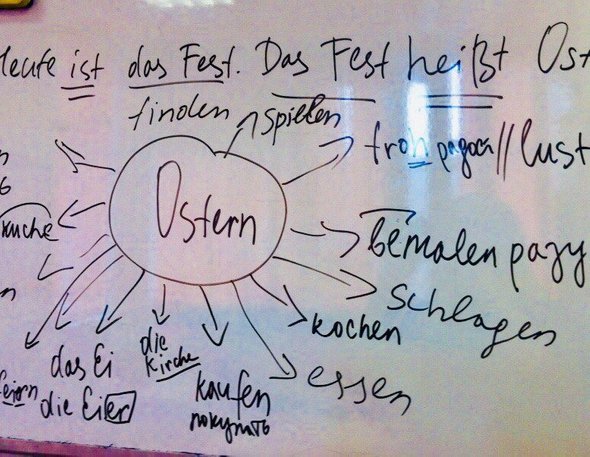 Heute ist das Fest. Das Fest heißt Ost
finden
spielen
froh // lust
Ostern
kuche
bemalen разу
schlagen
kochen
essen
die
kirche
kaufen
покупать
das Ei
die Eier
feiern